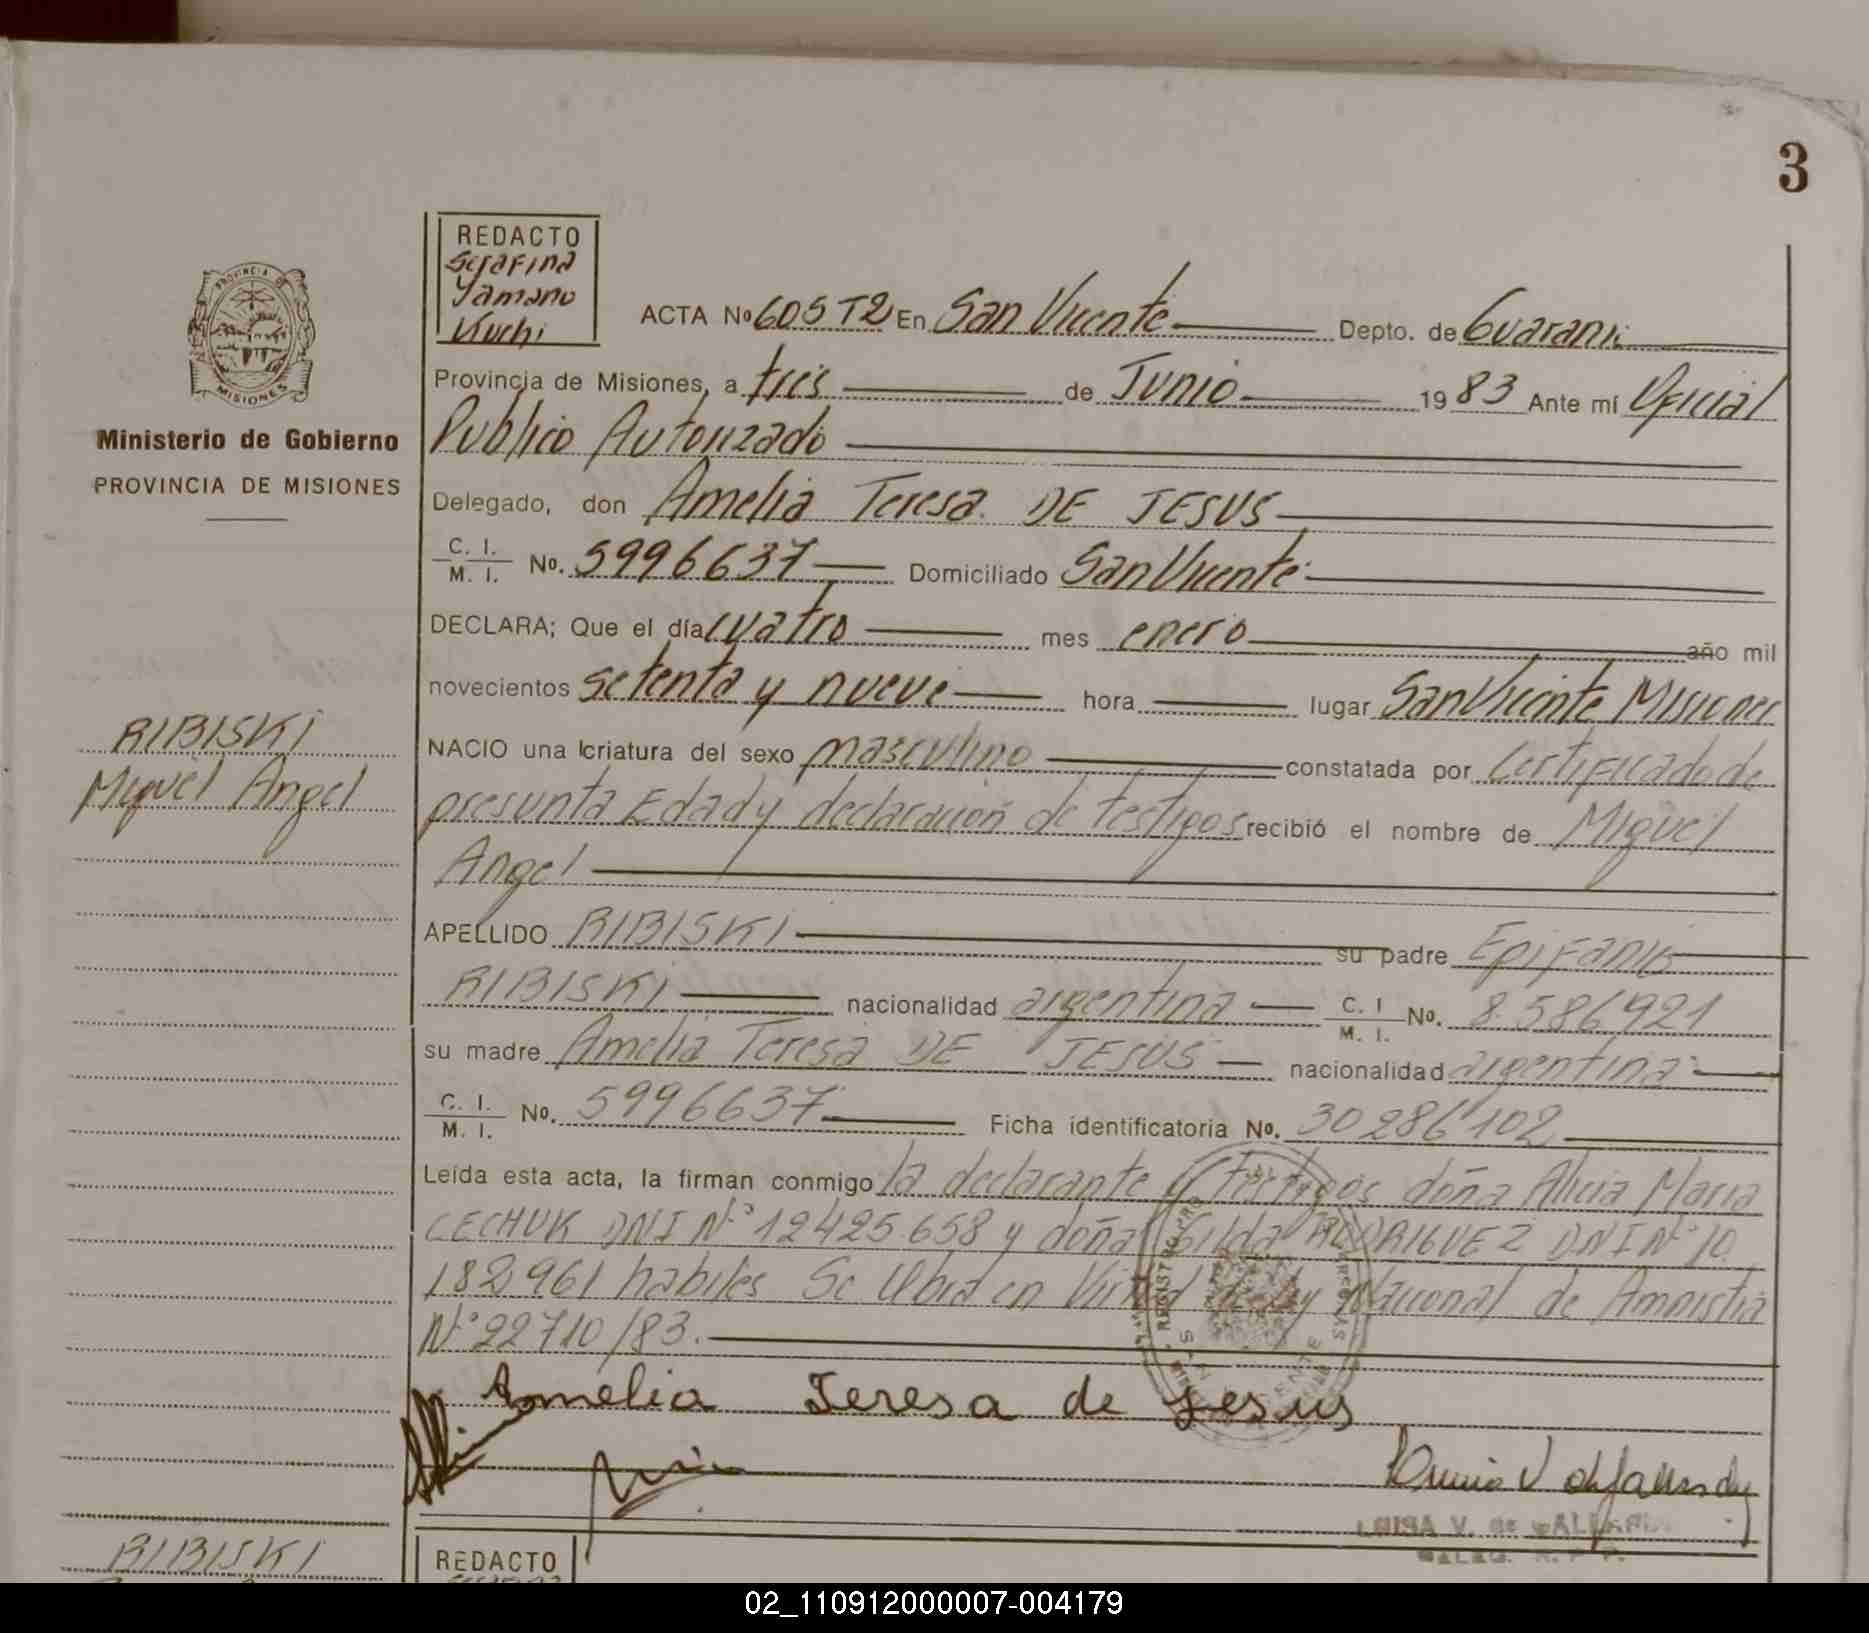 3
REDACTO
Serafina
Yamano
Kiuchi
ACTA Nº 605 T2 En San Vicente Depto. de Guarani
Provincia de Misiones, a tres de Junio 1983 Ante mí Oficial
Publico Autorizado
Ministerio de Gobierno
PROVINCIA DE MISIONES
Delegado, don Amelia Teresa DE JESUS
C. I. M. I. No. 5996637 Domiciliado San Vicente
DECLARA; Que el día cuatro mes enero año mil
novecientos setenta y nueve hora lugar San Vicente Misiones
RIBISKI
Miguel Angel
NACIO una criatura del sexo masculino constatada por Certificado de
presunta Edad y declaración de testigos recibió el nombre de Miguel
Angel
APELLIDO RIBISKI su padre Epifanio
RIBISKI nacionalidad argentina C. I M. I. No. 8.586921
su madre Amelia Teresa DE JESUS nacionalidad argentina
C. I. M. I. No. 5996637 Ficha identificatoria No. 30286102
Leída esta acta, la firman conmigo la declarante y testigos doña Alicia Maria
CECHUK DNI Nº 12425.658 y doña Gilda RODRIGUEZ DNI Nº 10.
182961 habiles Se labra en Virtud de ley Nacional de Amnistia
Nº 22710/83.
Amelia Teresa de Jesus
LUISA V. de
RIBISKI
REDACTO
02_110912000007-004179